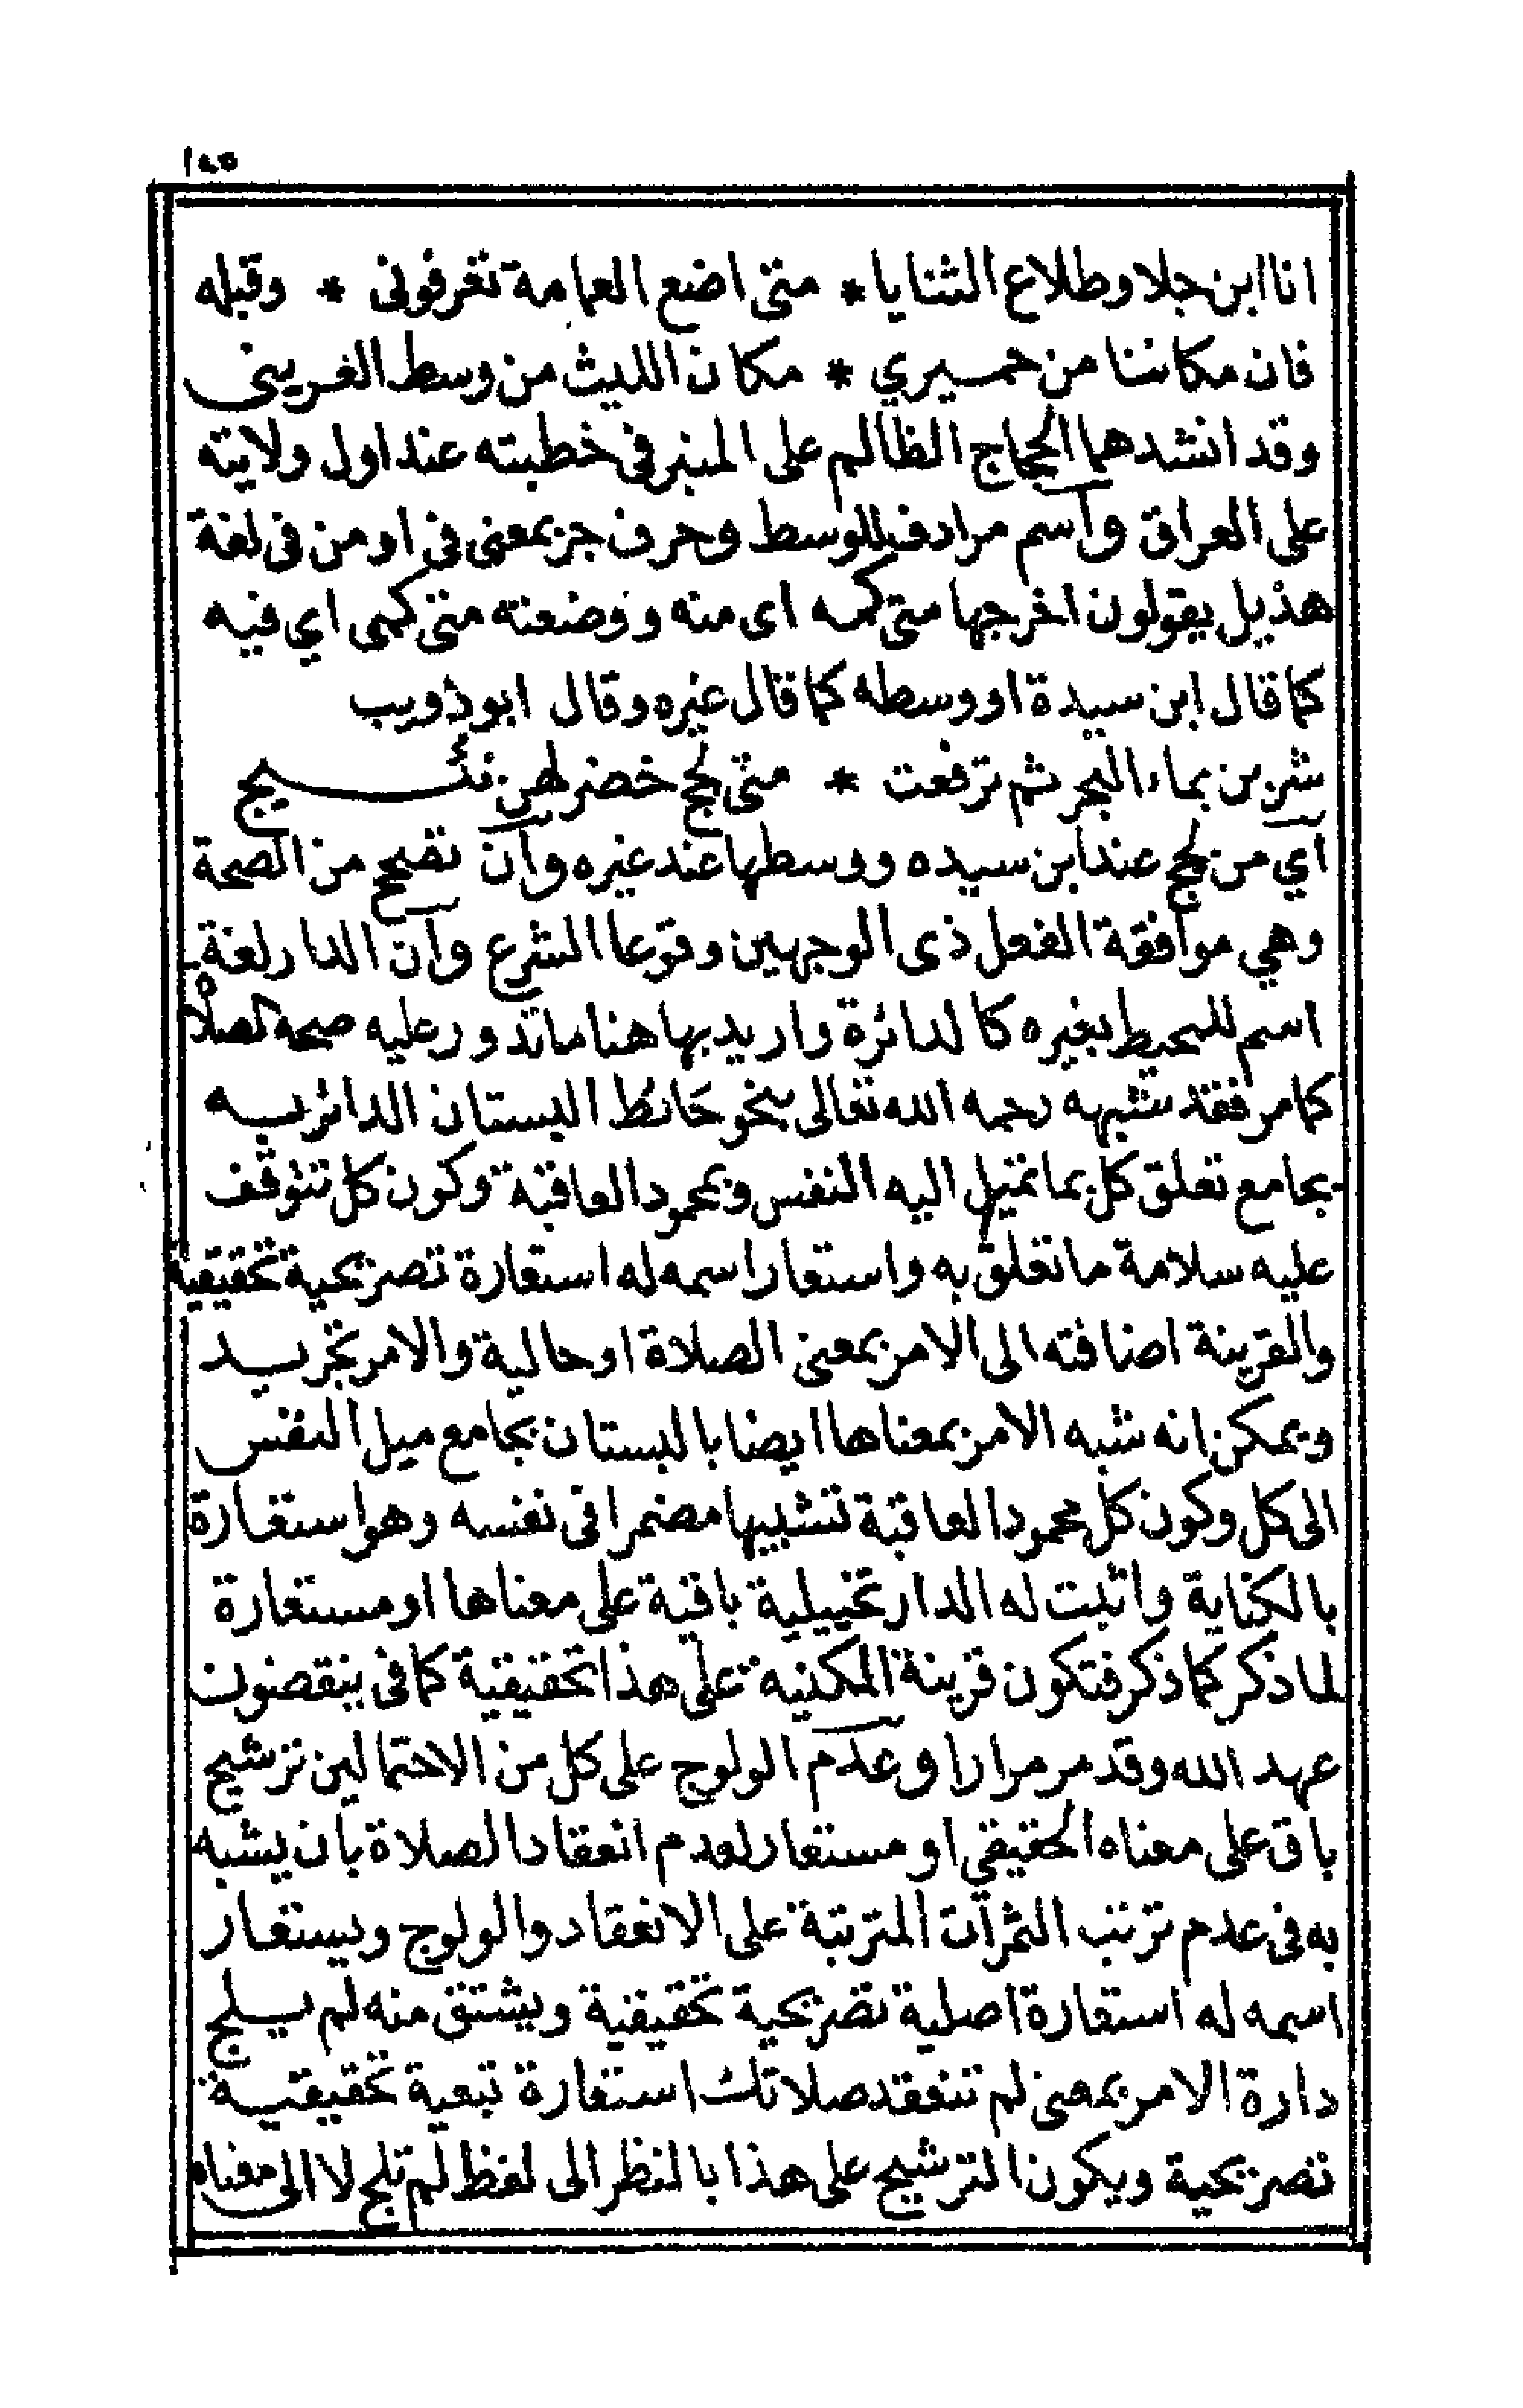 ١٤٥
انا ابن جلا وطلاع الثنايا * متى اضع العمامة تعرفونى * وقبله
فان مكاننا من حميري * مكان الليث من وسط العرينى
وقد انشدهما الحجاج الظالم على المنبر فى خطبته عند اول ولايته
على العراق واسم مرادف للوسط وحرف جر بمعنى فى او من فى لغة
هذيل يقولون اخرجها متى كمه اى منه ووضعته متى كمى اي فيه
كما قال ابن سيدة او وسطه كما قال غيره وقال ابو ذويب
شربن بماء البحر ثم ترفعت * متى لجج خضر لهن نئيج
آي من لجج عند ابن سيده ووسطها عند غيره وان تصح من الصحة
وهي موافقة الفعل ذى الوجهين وقوعا الشرع وان الدار لغة
اسم للمحيط بغيره كالدائرة واريد بها هنا ما تدور عليه صحة الصلاة
كما مر فقد شبهه رحمه الله تعالى بنحو حَائط البستان الدائر به
بجامع تعلق كل بما تميل اليه النفس وبمحمود العاقبة وكون كل تتوقف
عليه سلامة ما تعلق به واستعار اسمه له استعارة تصريحية تحقيقية
والقرينة اضافته الى الامر بمعنى الصلاة او حالية والامر تجريد
ويمكن انه شبه الامر بمعناها ايضا بالبستان بجامع ميل النفس
الى كل وكون كل محمود العاقبة تشبيها مضمرا فى نفسه وهو استعارة
بالكناية واثبت له الدار تخييلية باقية على معناها او مستعارة
لما ذكر كما ذكر فتكون قرينة المكنية على هذا تحقيقية كما فى ينقضون
عهد الله وقد مر مرارا وعدم الولوج على كل من الاحتمالين ترشيح
باق على معناه الحقيقي او مستعار لعدم انعقاد الصلاة بان يشبه
به فى عدم ترتب الثمرآت المترتبة على الانعقاد والولوج ويستعار
اسمه له استعارة اصلية تصريحية تحقيقية ويشتق منه لم يلج
دارة الامر بمعنى لم تنعقد صلاتك استعارة تبعية تحقيقية
تصريحية ويكون الترشيح على هذا بالنظر الى لفظ لم تلج لا الى معناه